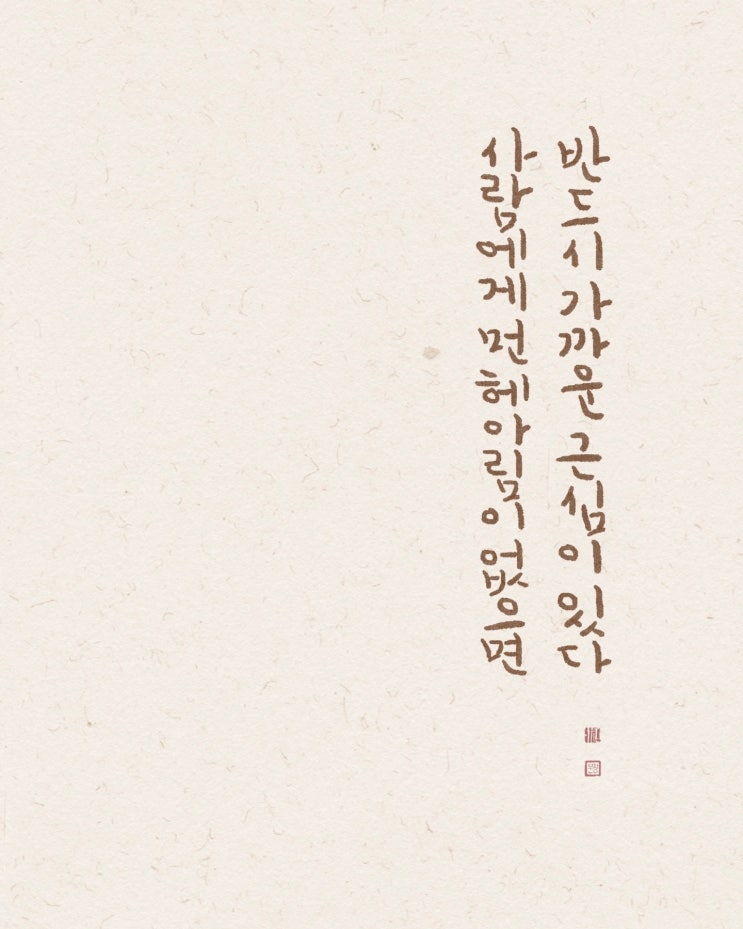 사람에게 먼 헤아림이 없으면
반드시 가까운 근심이 있다